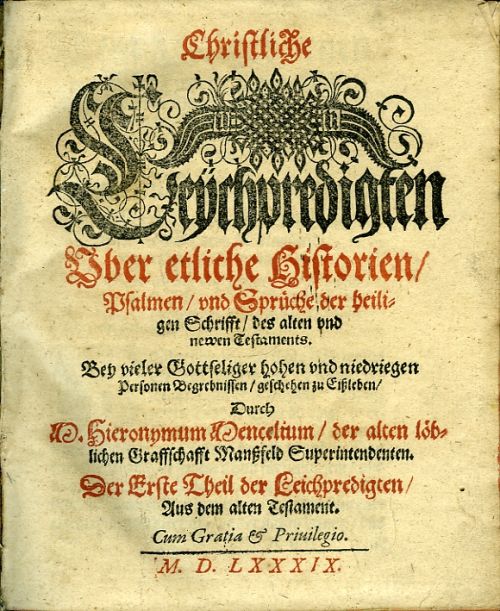 Christliche
Leÿchpredigten
Vber etliche Historien/
Psalmen/ vnd Sprüche der heili-
gen Schrifft/ des alten vnd
newen Testaments.
Bey vieler Gottseliger hohen vnd niedriegen
Personen Begrebnissen/ geschehen zu Eißleben/
Durch
M. Hieronymum Mencelium/ der alten löb-
lichen Graffschafft Manßfeld Superintendenten.
Der Erste Theil der Leichpredigten/
Aus dem alten Testament.
Cum Gratia & Priuilegio.
M. D. LXXXIX.